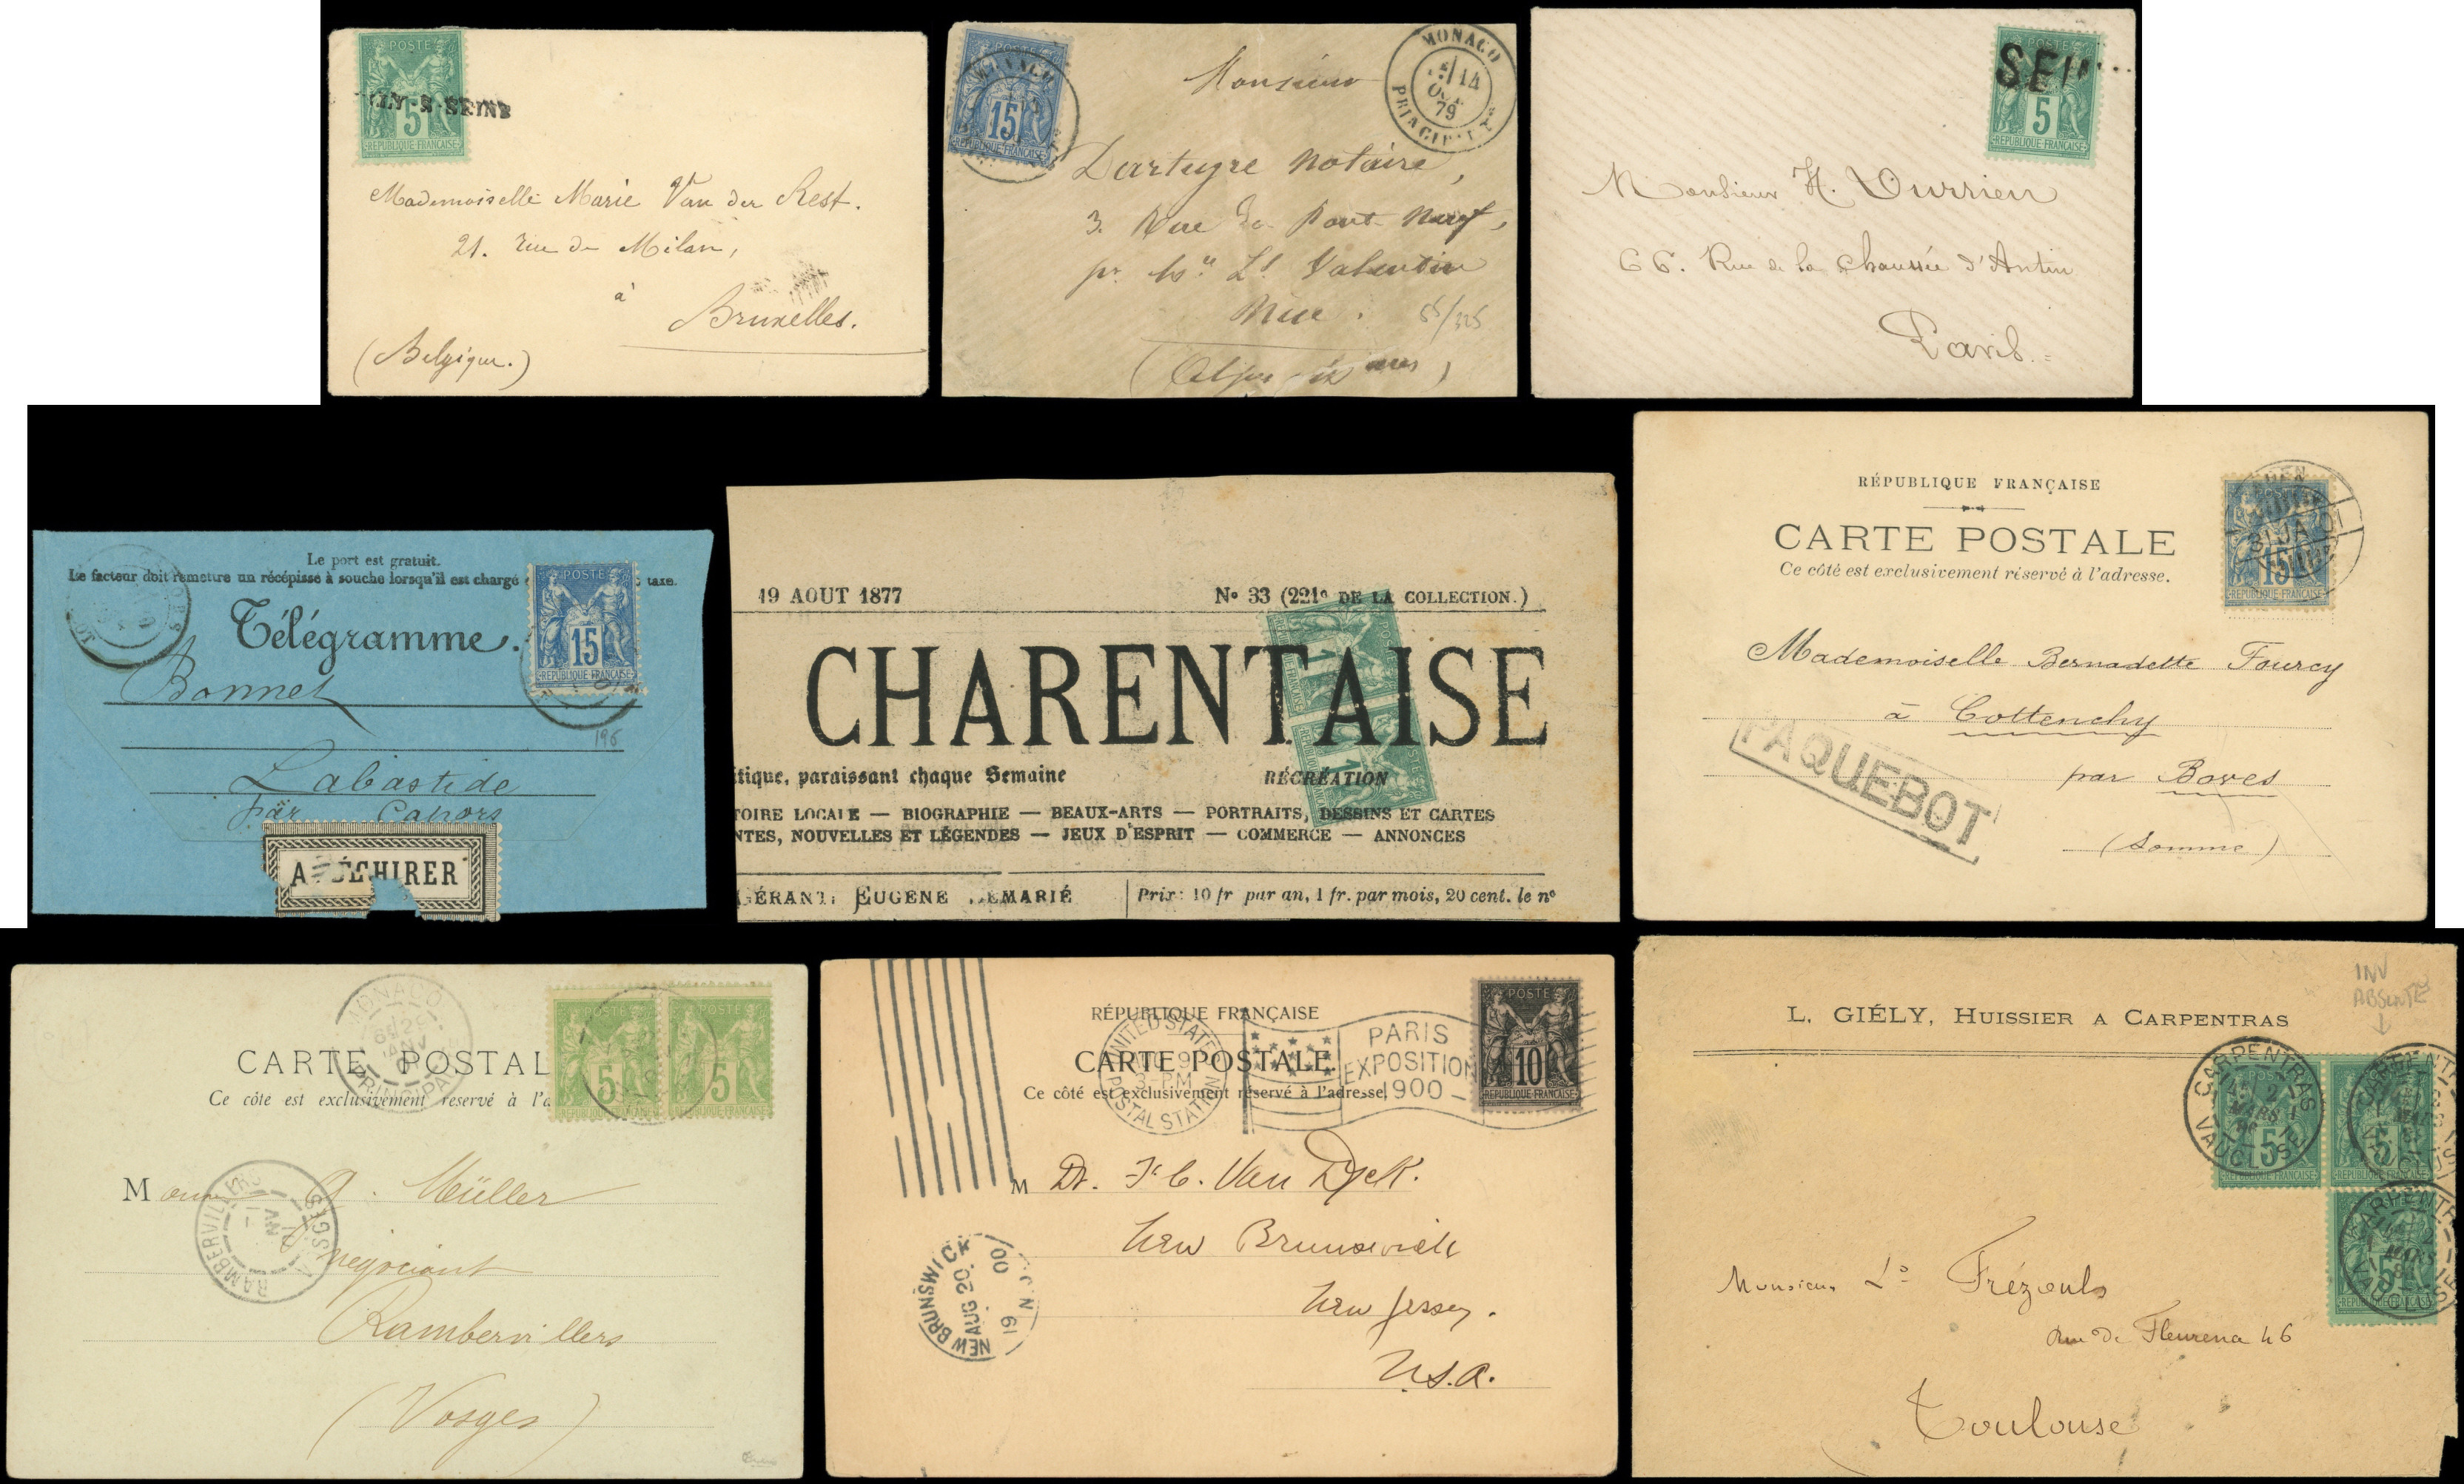 POSTE
5
REPUBLIQUE FRANÇAISE
LY-S-SEINE
Mademoiselle Marie Van der Rest.
21. rue de Milan,
à
Bruxelles.
(Belgique.)
POSTE
MONACO
15
REPUBLIQUE FRANÇAISE
MONACO
14
79
Monsieur
Notaire,
3. Rue du Pont Neuf,
Valentin
Nice.
55/325
POSTE
5
REPUBLIQUE FRANÇAISE
Monsieur H. Durrien
66. Rue de la Chaussée d'Antin
Paris.
Le port est gratuit.
Le facteur doit remettre un récépissé à souche lorsqu'il est chargé taxe.
Télégramme.
POSTE
15
REPUBLIQUE FRANÇAISE
Bonnet
196
Labastide
par Cahors
A DÉCHIRER
19 AOUT 1877
No 33 (221e DE LA COLLECTION.)
CHARENTAISE
1
1
itique, paraissant chaque Semaine
RÉCRÉATION
TOIRE LOCALE — BIOGRAPHIE — BEAUX-ARTS — PORTRAITS, DESSINS ET CARTES
NTES, NOUVELLES ET LÉGENDES — JEUX D'ESPRIT — COMMERCE — ANNONCES
GÉRANT: EUGÈNE EMARIÉ
Prix: 10 fr par an, 1 fr. par mois, 20 cent. le no
RÉPUBLIQUE FRANÇAISE
CARTE POSTALE
Ce côté est exclusivement réservé à l'adresse.
31 JA 01
15
REPUBLIQUE FRANÇAISE
Mademoiselle Bernadette Fourcy
à Cottenchy
par Boves
(Somme)
PAQUEBOT
MONACO
PRINCIPAUTE
CARTE POSTAL
Ce côté est exclusivement réservé à l'a
POSTE
5
REPUBLIQUE FRANÇAISE
POSTE
5
REPUBLIQUE FRANÇAISE
M Müller
négociant
Rambervillers
(Vosges)
RAMBERVILLERS
VOSGES
RÉPUBLIQUE FRANÇAISE
CARTE POSTALE
Ce côté est exclusivement réservé à l'adresse
UNITED STATES
AUG 9
3-PM
POSTAL STATION
PARIS
EXPOSITION
1900
POSTE
10
REPUBLIQUE FRANÇAISE
M Dr. F. C. Van Dyck.
New Brunswick
New Jersey.
U.S.A.
NEW BRUNSWICK, N.J.
AUG 20
1900
INV
ABSENTE
L. GIÉLY, HUISSIER A CARPENTRAS
CARPENTRAS
2
MARS
VAUCLUSE
5
REPUBLIQUE FRANÇAISE
5
5
Monsieur Frézouls
rue de Fleurena 46
Toulouse